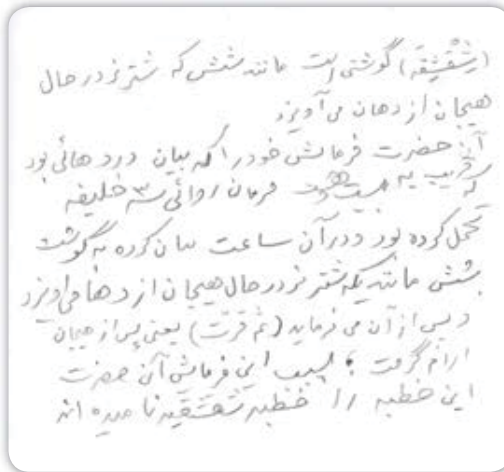 (شِقْشِقَة) گوشتی است مانند شش که شتر نر در حال
هیجان از دهان می آویزد
آن حضرت فرمایش خود را که بیان درد هائی بود
که قریب به بیست فرمان روائی سه خلیفه
تحمل کرده بود و در آن ساعت بیان کرده به گوشت
شش مانندیکه شتر نر در حال هیجان از دهان می آویزد
و پس از آن می فرماید (ثم قرّت) یعنی پس از هیجان
آرام گرفت به سبب این فرمایش آن حضرت
این خطبه را خطبه شقشقیه نامیده اند